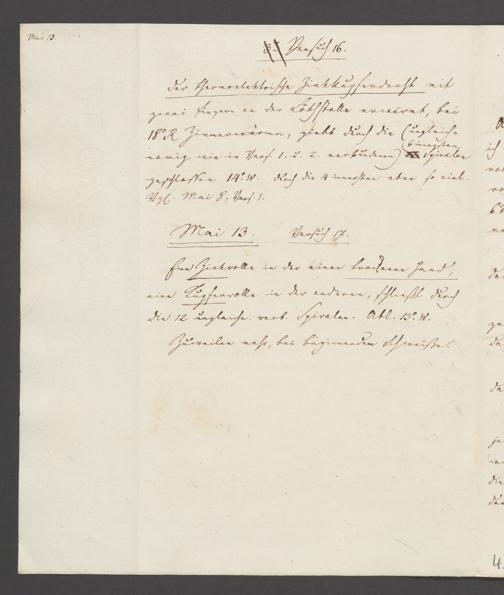 Mai 13
Versuch 16.
Der thermoelektrische Zinkkupferdraht mit
zwei Fingern an der Löthstelle erwärmt, bei
18° R Zimmerwärme, giebt durch die (ungleich-
namig wie in Vers. 1. u. 2. verbundenen) 6 innersten Spiralen
geschlossen 14° W. durch die 4 innersten eben so viel.
Vgl. Mai 8, Vers. 1.
Mai 13. Versuch 17.
Eine Zinkrolle in der einen trockenen Hand,
eine Kupferrolle in der anderen, schließt durch
die 12 ungleichn. verb. Spiralen. Abl. 13° W.
Zuweilen mehr, bei beginnendem Schweiße.